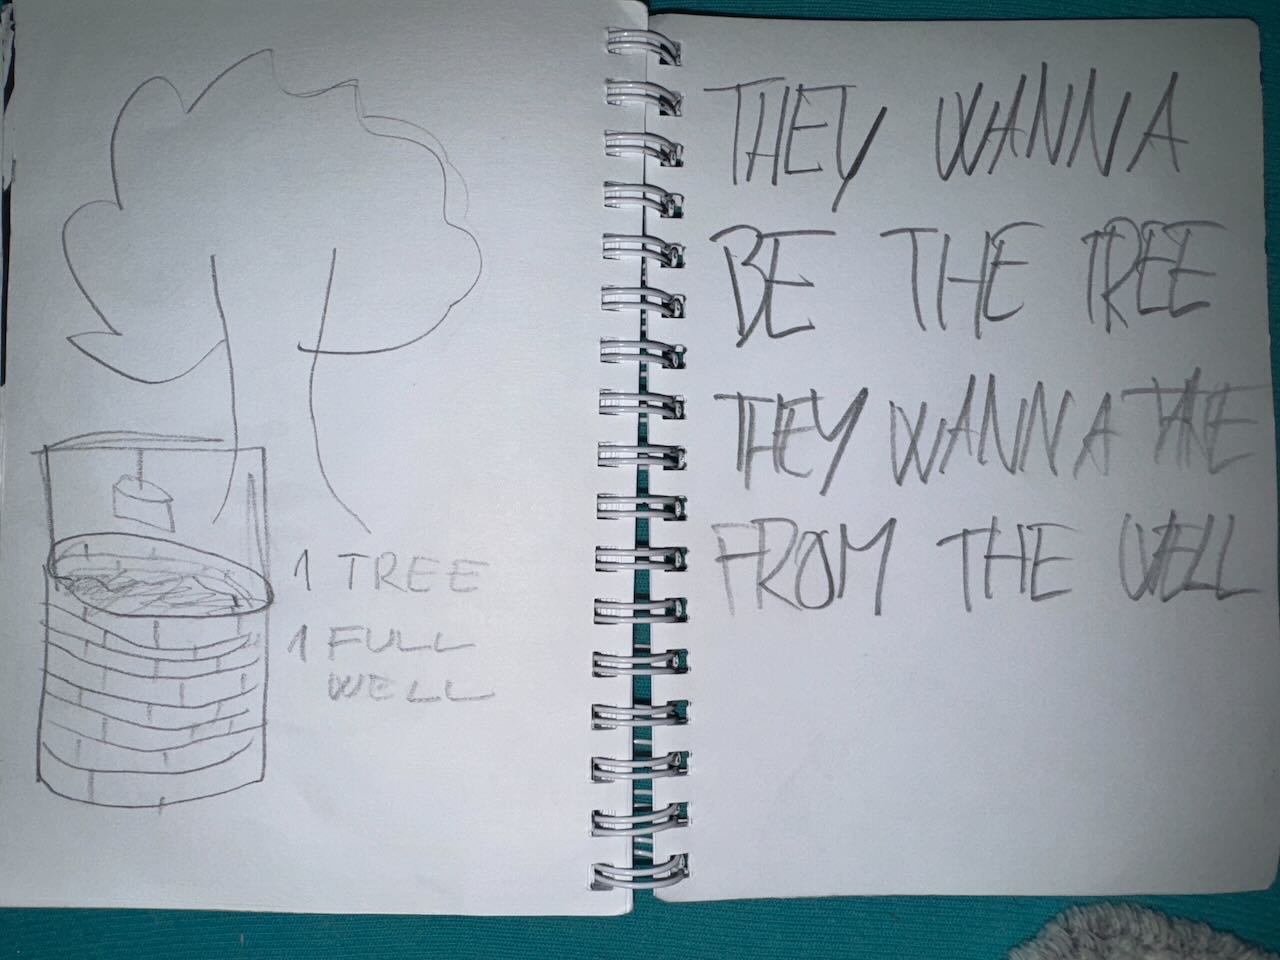 1 TREE
1 FULL
WELL
THEY WANNA
BE THE TREE
THEY WANNA TAKE
FROM THE WELL